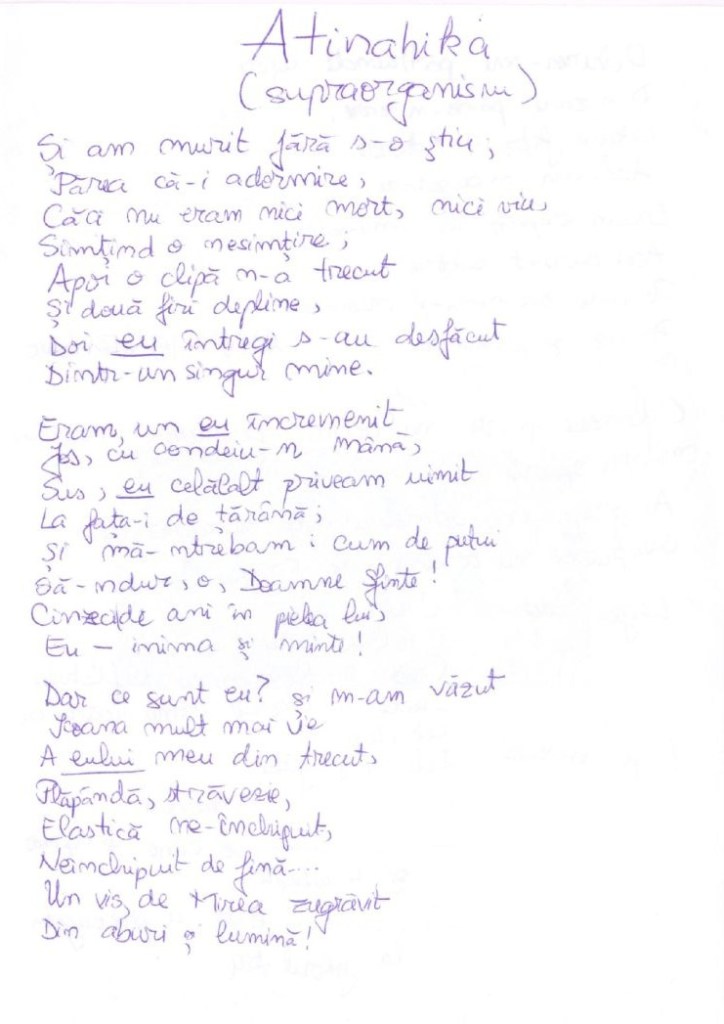 Atinahika
(supraorganism)
Și am murit fără s-o știu,
Părea că-i adormire,
Căci nu eram nici mort, nici viu,
Simțind o nesimțire;
Apoi o clipă n-a trecut
Și două firi depline,
Doi eu întregi s-au desfăcut
Dintr-un singur mine.
Eram, un eu încremenit
Jos, cu condeiu-n mână,
Sus, eu celălalt priveam uimit
La fața-i de țărână;
Și mă-ntrebam: cum de putui
Să-ndur, o, Doamne sfinte!
Cinzecide ani în pielea lui,
Eu – inima și minte!
Dar ce sunt eu? și m-am văzut
Icoana mult mai vie
A eului meu din trecut,
Plăpândă, străvezie,
Elastică ne-închipuit,
Neînchipuit de fină...
Un vis, de Mirea zugrăvit
Din aburi și lumină!